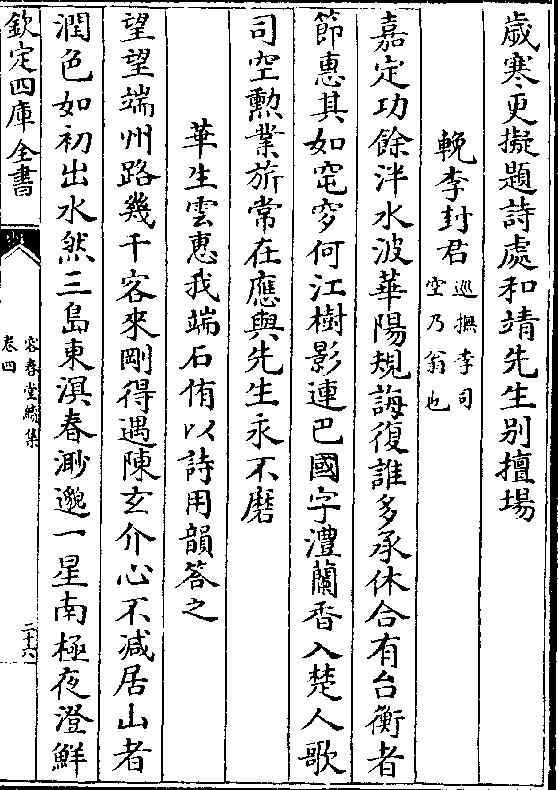 歲寒更擬題詩處和靖先生別擅場
輓李封君巡撫李司空乃翁也
嘉定功餘泮水波華陽規誨復誰多承休合有台衡者
節惠其如窀穸何江樹影連巴國字澧蘭香入楚人歌
司空勲業旂常在應與先生永不磨
華生雲惠我端石侑以詩用韻答之
望望端州路幾千客來剛得遇陳玄介心不减居山者
潤色如初出水然三島東溟春渺邈一星南極夜澄鮮
欽定四庫全書
容春堂續集
卷四
二十六